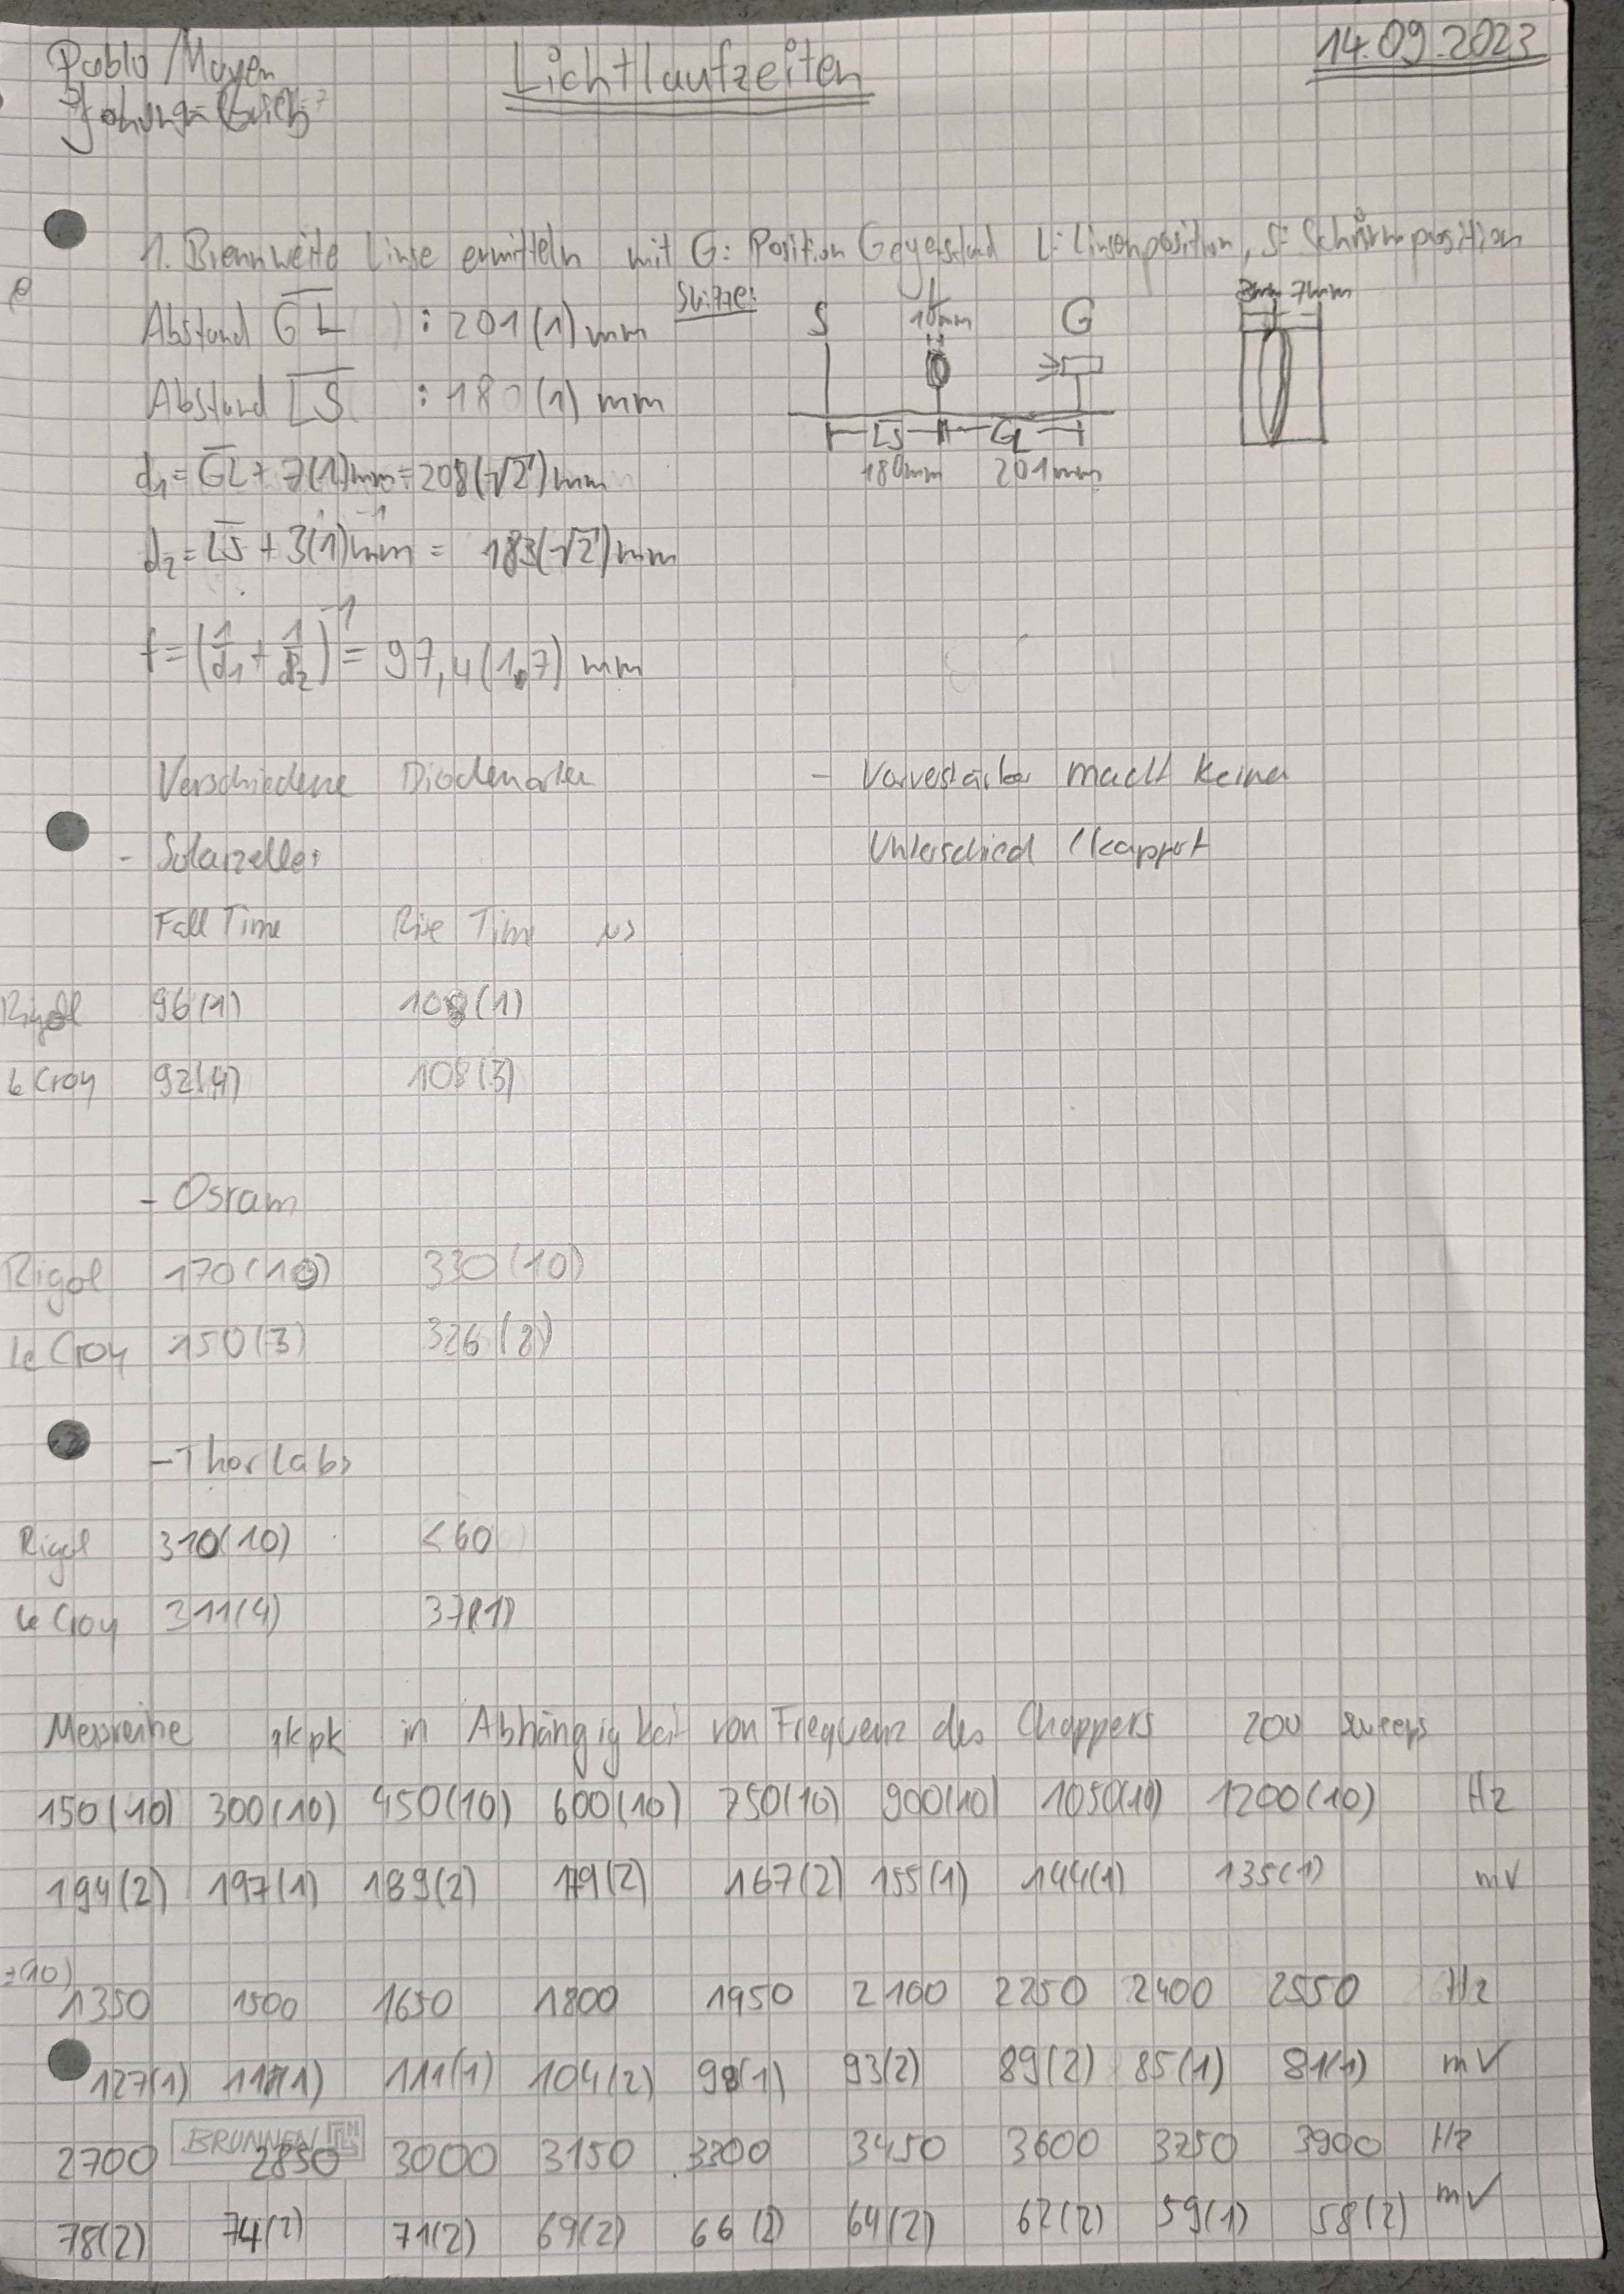 Pablo Mayer Lichtlaufzeiten 14.09.2023
1. Brennweite Linse ermitteln mit G: Position Gegenstand L: Linsenposition, S: Schirmposition
Abstand GL : 201(1) mm
Skizze:
S L G
10mm
3mm 7mm
Abstand LS : 180(1) mm
LS GL
180mm 201mm
d1 = GL + 7(1)mm = 208(√2)mm
d2 = LS + 3(1)mm = 183(√2)mm
f = (1/d1 + 1/d2)^-1 = 97,4(1,7) mm
Verschiedene Diodenarten - Vorverstärker macht keinen
- Solarzelle: Unterschied
Fall Time Rise Time µs
Rigol 96(1) 108(1)
Le Croy 92(4) 108(3)
- Osram
Rigol 170(10) 330(10)
Le Croy 150(3) 326(2)
- Thorlabs
Rigol 310(10) <60
Le Croy 311(4) 37(1)
Messreihe pkpk in Abhängigkeit von Frequenz des Choppers 200 sweeps
150(10) 300(10) 450(10) 600(10) 750(10) 900(10) 1050(10) 1200(10) Hz
194(2) 197(1) 189(2) 179(2) 167(2) 155(1) 144(1) 135(1) mV
±(10)
1350 1500 1650 1800 1950 2100 2250 2400 2550 Hz
127(1) 111(1) 104(2) 98(1) 93(2) 89(2) 85(1) 81(1) mV
BRUNNEN
2700 2850 3000 3150 3300 3450 3600 3750 3900 Hz
78(2) 74(2) 71(2) 69(2) 66(2) 64(2) 62(2) 59(1) 58(2) mV